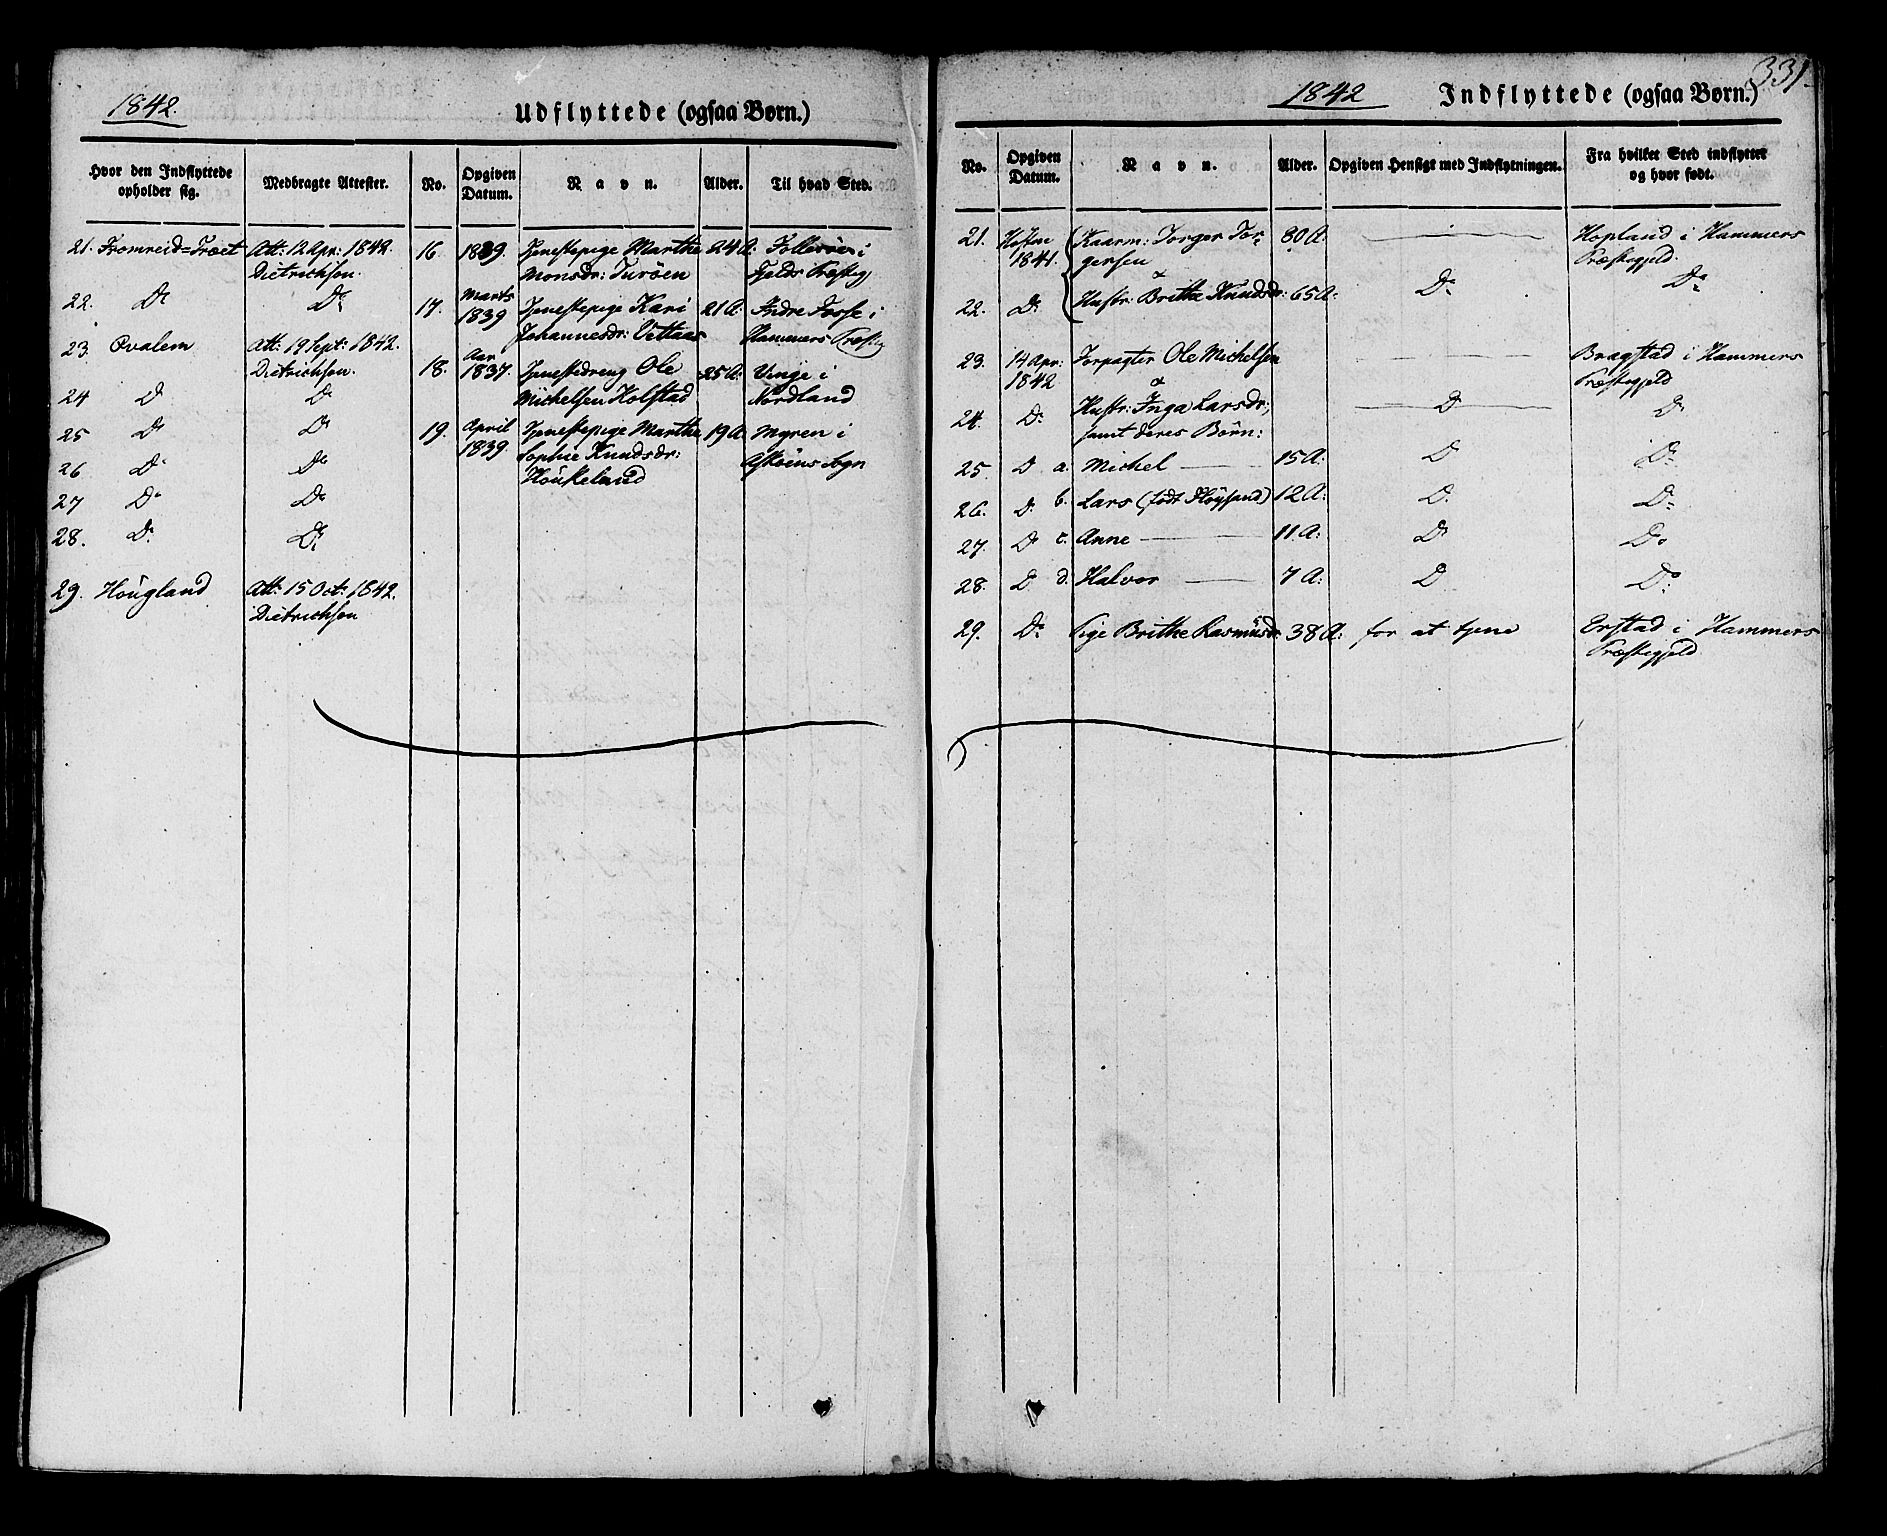 1842.
Udflyttede (ogsaa Børn.)
Hvor den Indflyttede opholder sig.
Medbragte Attester.
No.
Opgiven Datum.
Navn.
Alder.
Til hvad Sted.
21. Fromreid=Træet Att: 12 Apr: 1842. Dietrichsen.
22. Do Do
23. Qvalem Att: 19 Sept: 1842. Dietrichsen.
24 D Do
25 Do Do
26 Do Do
27 Do Do
28. Do Do
29. Höugland Att: 15 Oct: 1842. Dietrichsen
16 1839. Tjenestepige Marthe 24 A: i
Monsdr: Turöen Fjelds Præstegj
17. Marts 1839 Tjenestepige Kari 21 A: Indre Fosse i
Johannesdr: Vettaas Hammers Præstg
18. Aar 1837. Tjenestedreng Ole 25 A: Vinge i
Michelsen Kolstad Nordland
19. April 1839 Tjenestepige Marthe 19 A: Myren i
Sophie Knudsdr: Askøens Sogn
Höukeland
331.
1842
Indflyttede (ogsaa Børn.)
No.
Opgiven Datum.
Navn.
Alder.
Opgiven Hensigt med Indflytningen.
Fra hvilket Sted indflyttet og hvor født.
21. Høsten 1841. Kaarm: Torger Tor- 80 A: Hopland i Hammers
gersen Præstegjeld.
&
22. Do Hustr: Brithe Knudsdr: 65 A: Do Do
23. 14 Apr: 1842 Forpagter Ole Michelsen Bragstad i Hammers
& Præstegjeld
24. Do Hustr: Inga Larsdr; D Do
samt deres Børn:
25. D a. Michel 15 A: D Do
26. D. b. Lars (født Fløysand) 12 A: D. Do
27. Do c. Anne 11 A: Do Do
28. D d. Halvor 7 A: D Do
29. Do Pige Brithe Rasmüsdr 38 A: for at tjene Erstad i Hammers
Præstegjeld